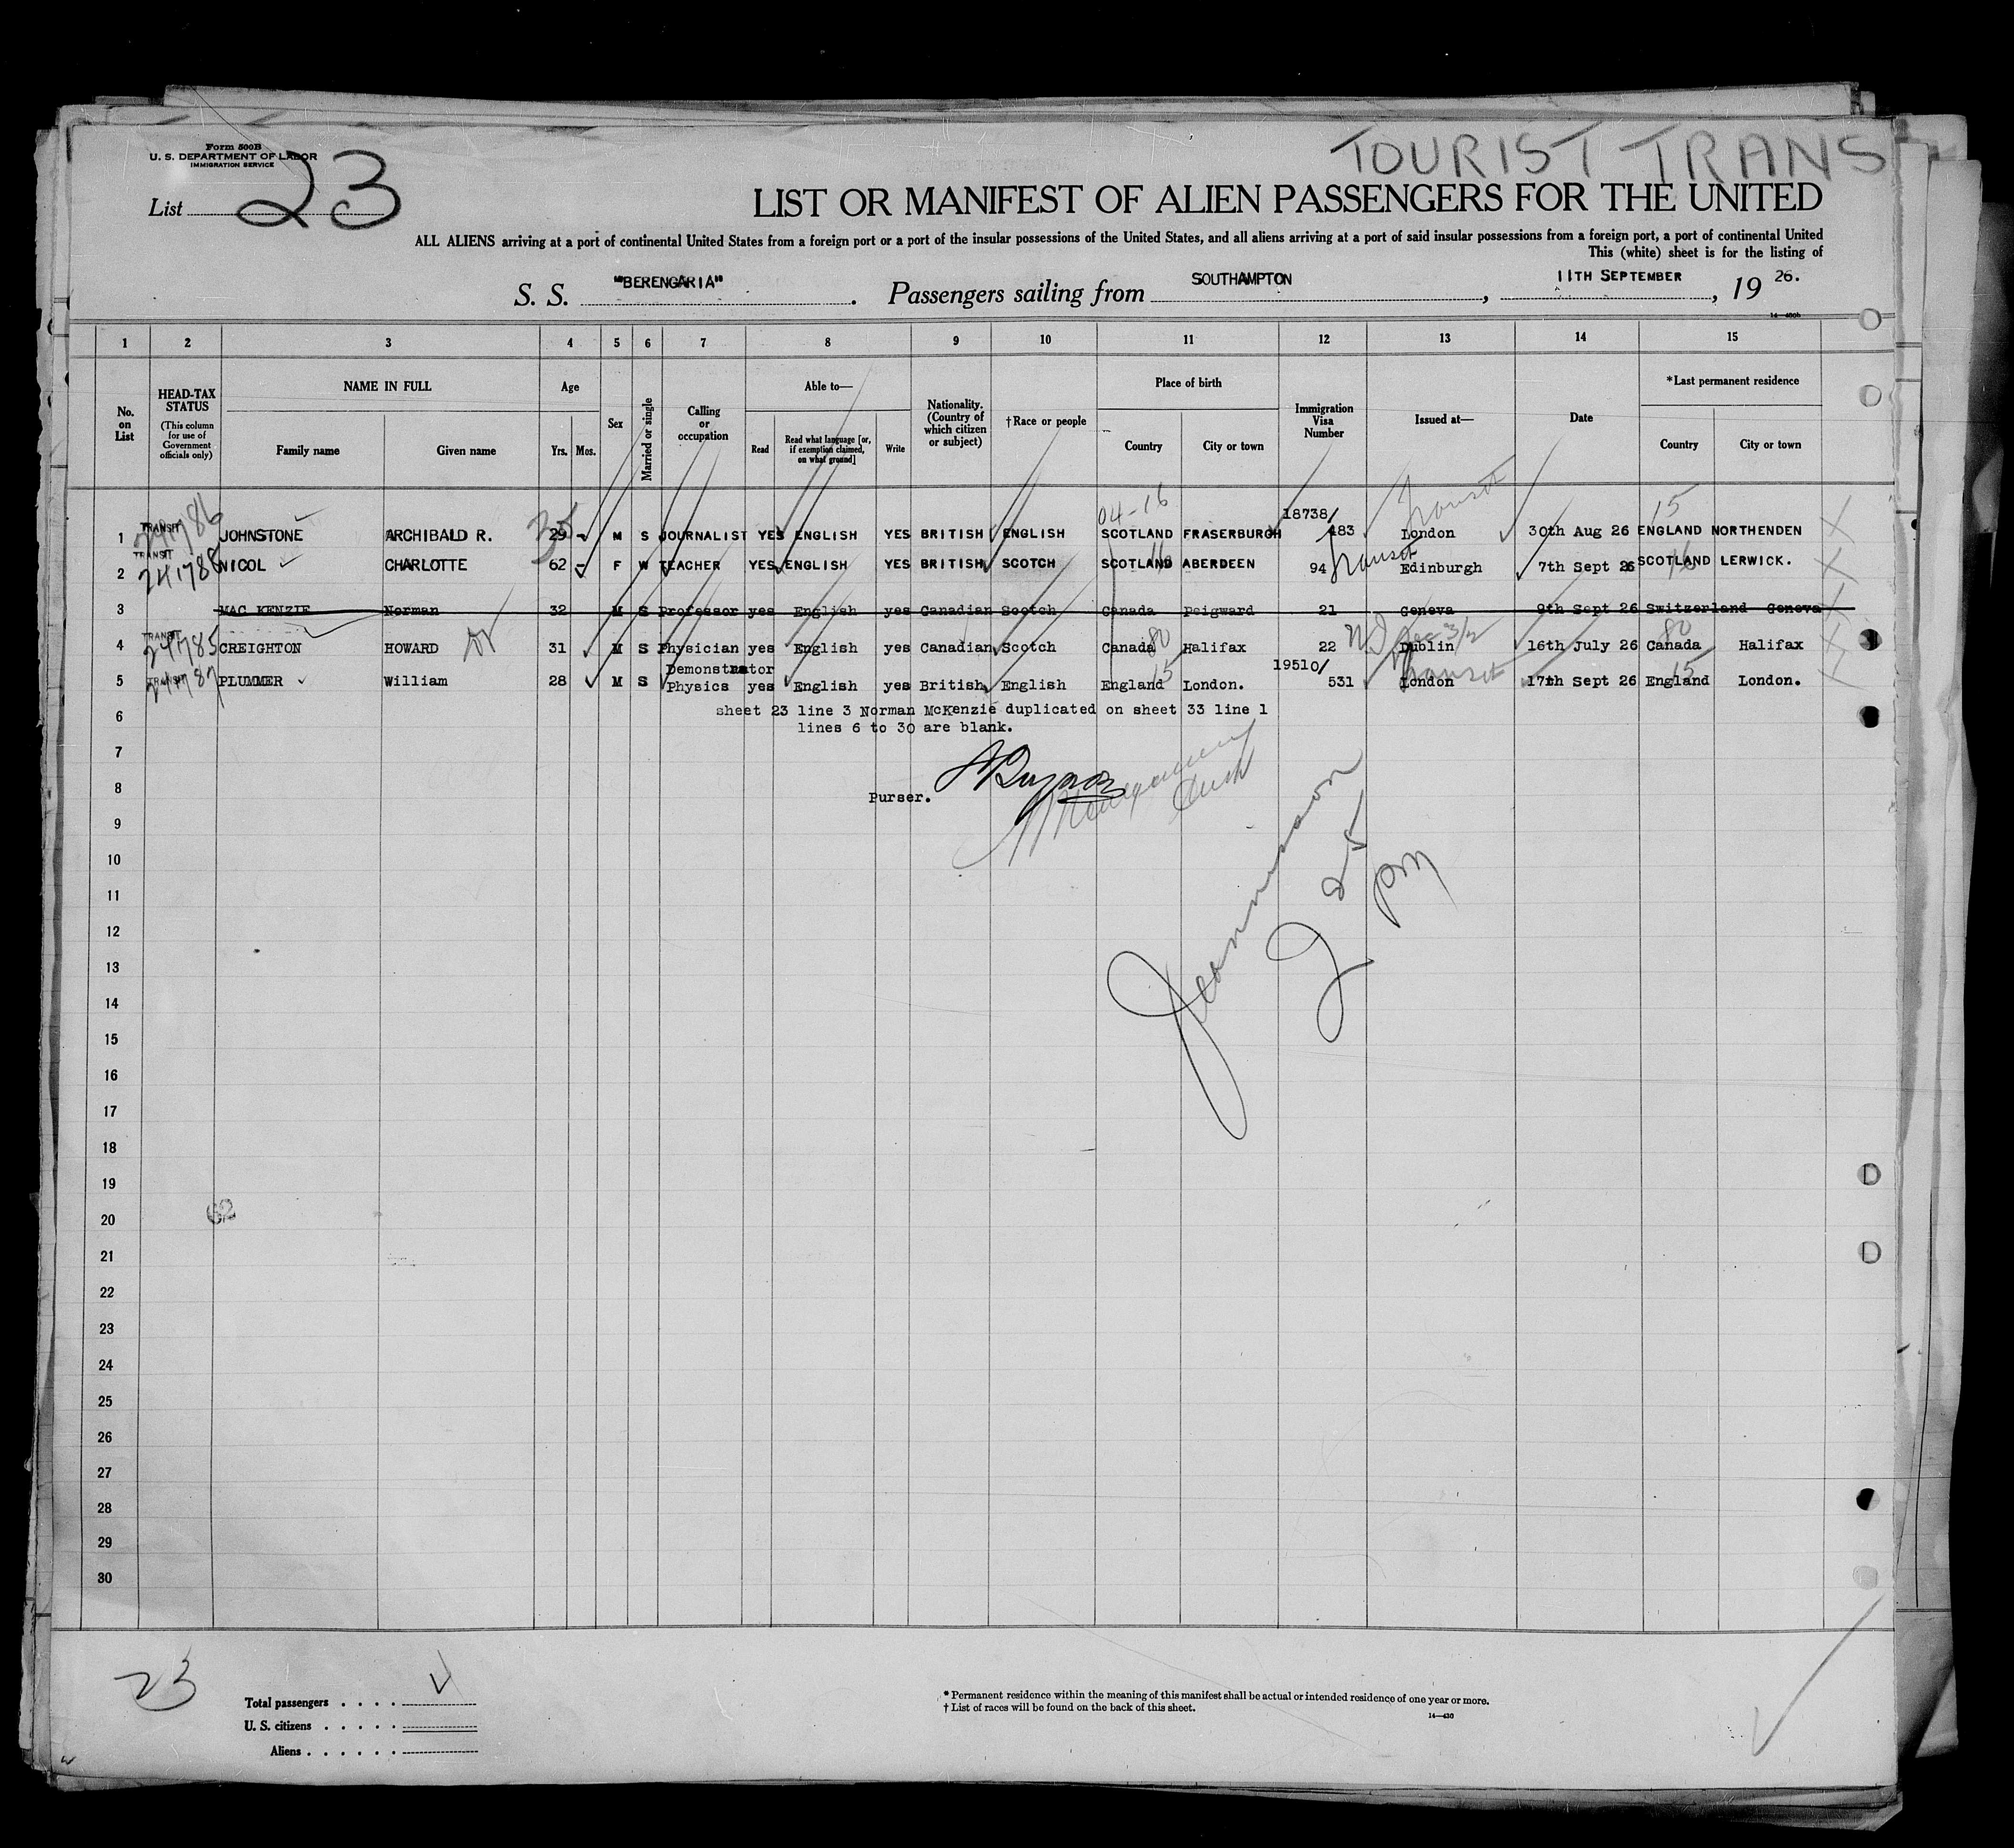 TOURIST TRANS
Form 500B
U. S. DEPARTMENT OF LABOR
IMMIGRATION SERVICE
List 23
LIST OR MANIFEST OF ALIEN PASSENGERS FOR THE UNITED
ALL ALIENS arriving at a port of continental United States from a foreign port or a port of the insular possessions of the United States, and all aliens arriving at a port of said insular possessions from a foreign port, a port of continental United
This (white) sheet is for the listing of
S. S. "BERENGARIA". Passengers sailing from SOUTHAMPTON, 11TH SEPTEMBER, 19 26.
1 2 3 4 5 6 7 8 9 10 11 12 13 14 15
No. on List
HEAD-TAX STATUS (This column for use of Government officials only)
NAME IN FULL
Family name Given name
Age
Yrs. Mos.
Sex
Married or single
Calling or occupation
Able to—
Read Read what language [or, if exemption claimed, on what ground] Write
Nationality. (Country of which citizen or subject)
†Race or people
Place of birth
Country City or town
Immigration Visa Number
Issued at—
Date
*Last permanent residence
Country City or town
04-16 transit 15
18738/
1 TRANSIT 241786 JOHNSTONE ARCHIBALD R. 35 29 - M S JOURNALIST YES ENGLISH YES BRITISH ENGLISH SCOTLAND FRASERBURGH 483 London 30th Aug 26 ENGLAND NORTHENDEN
2 TRANSIT 241788 NICOL CHARLOTTE 62 - F W TEACHER YES ENGLISH YES BRITISH SCOTCH SCOTLAND 16 ABERDEEN 94 transit Edinburgh 7th Sept 26 SCOTLAND 16 LERWICK.
3 MAC KENZIE Norman 32 M S Professor yes English yes Canadian Scotch Canada Peigward 21 Geneva 9th Sept 26 Switzerland Geneva
4 TRANSIT 241785 CREIGHTON HOWARD Dr 31 M S Physician yes English yes Canadian Scotch Canada 80 Halifax 22 Dublin 16th July 26 Canada 80 Halifax
Demonstrator 19510/
5 TRANSIT 241787 PLUMMER William 28 M S Physics yes English yes British English England 15 London. 531 transit London 17th Sept 26 England 15 London.
sheet 23 line 3 Norman McKenzie duplicated on sheet 33 line 1
6
lines 6 to 30 are blank.
7
8
Purser.
9
10
25
pm
11
12
13
14
15
16
17
18
19
20
62
21
22
23
24
25
26
27
28
29
30
23
Total passengers
U. S. citizens
Aliens
* Permanent residence within the meaning of this manifest shall be actual or intended residence of one year or more.
† List of races will be found on the back of this sheet.
14—430